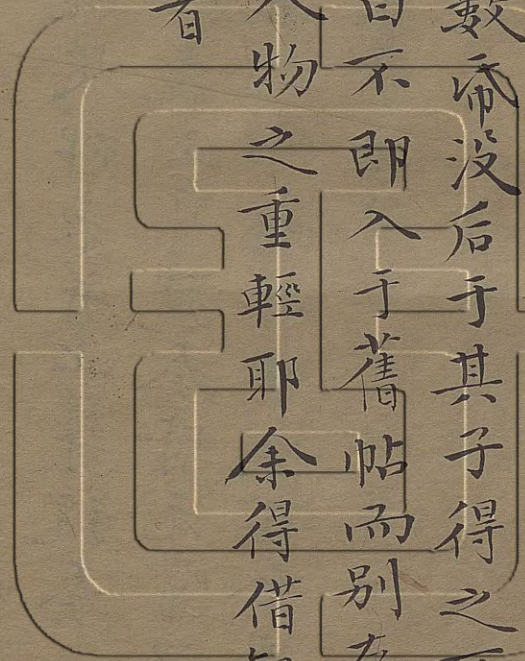 數帋没后于其子得之
不即入于舊帖而别
物之重輕耶余得借
有